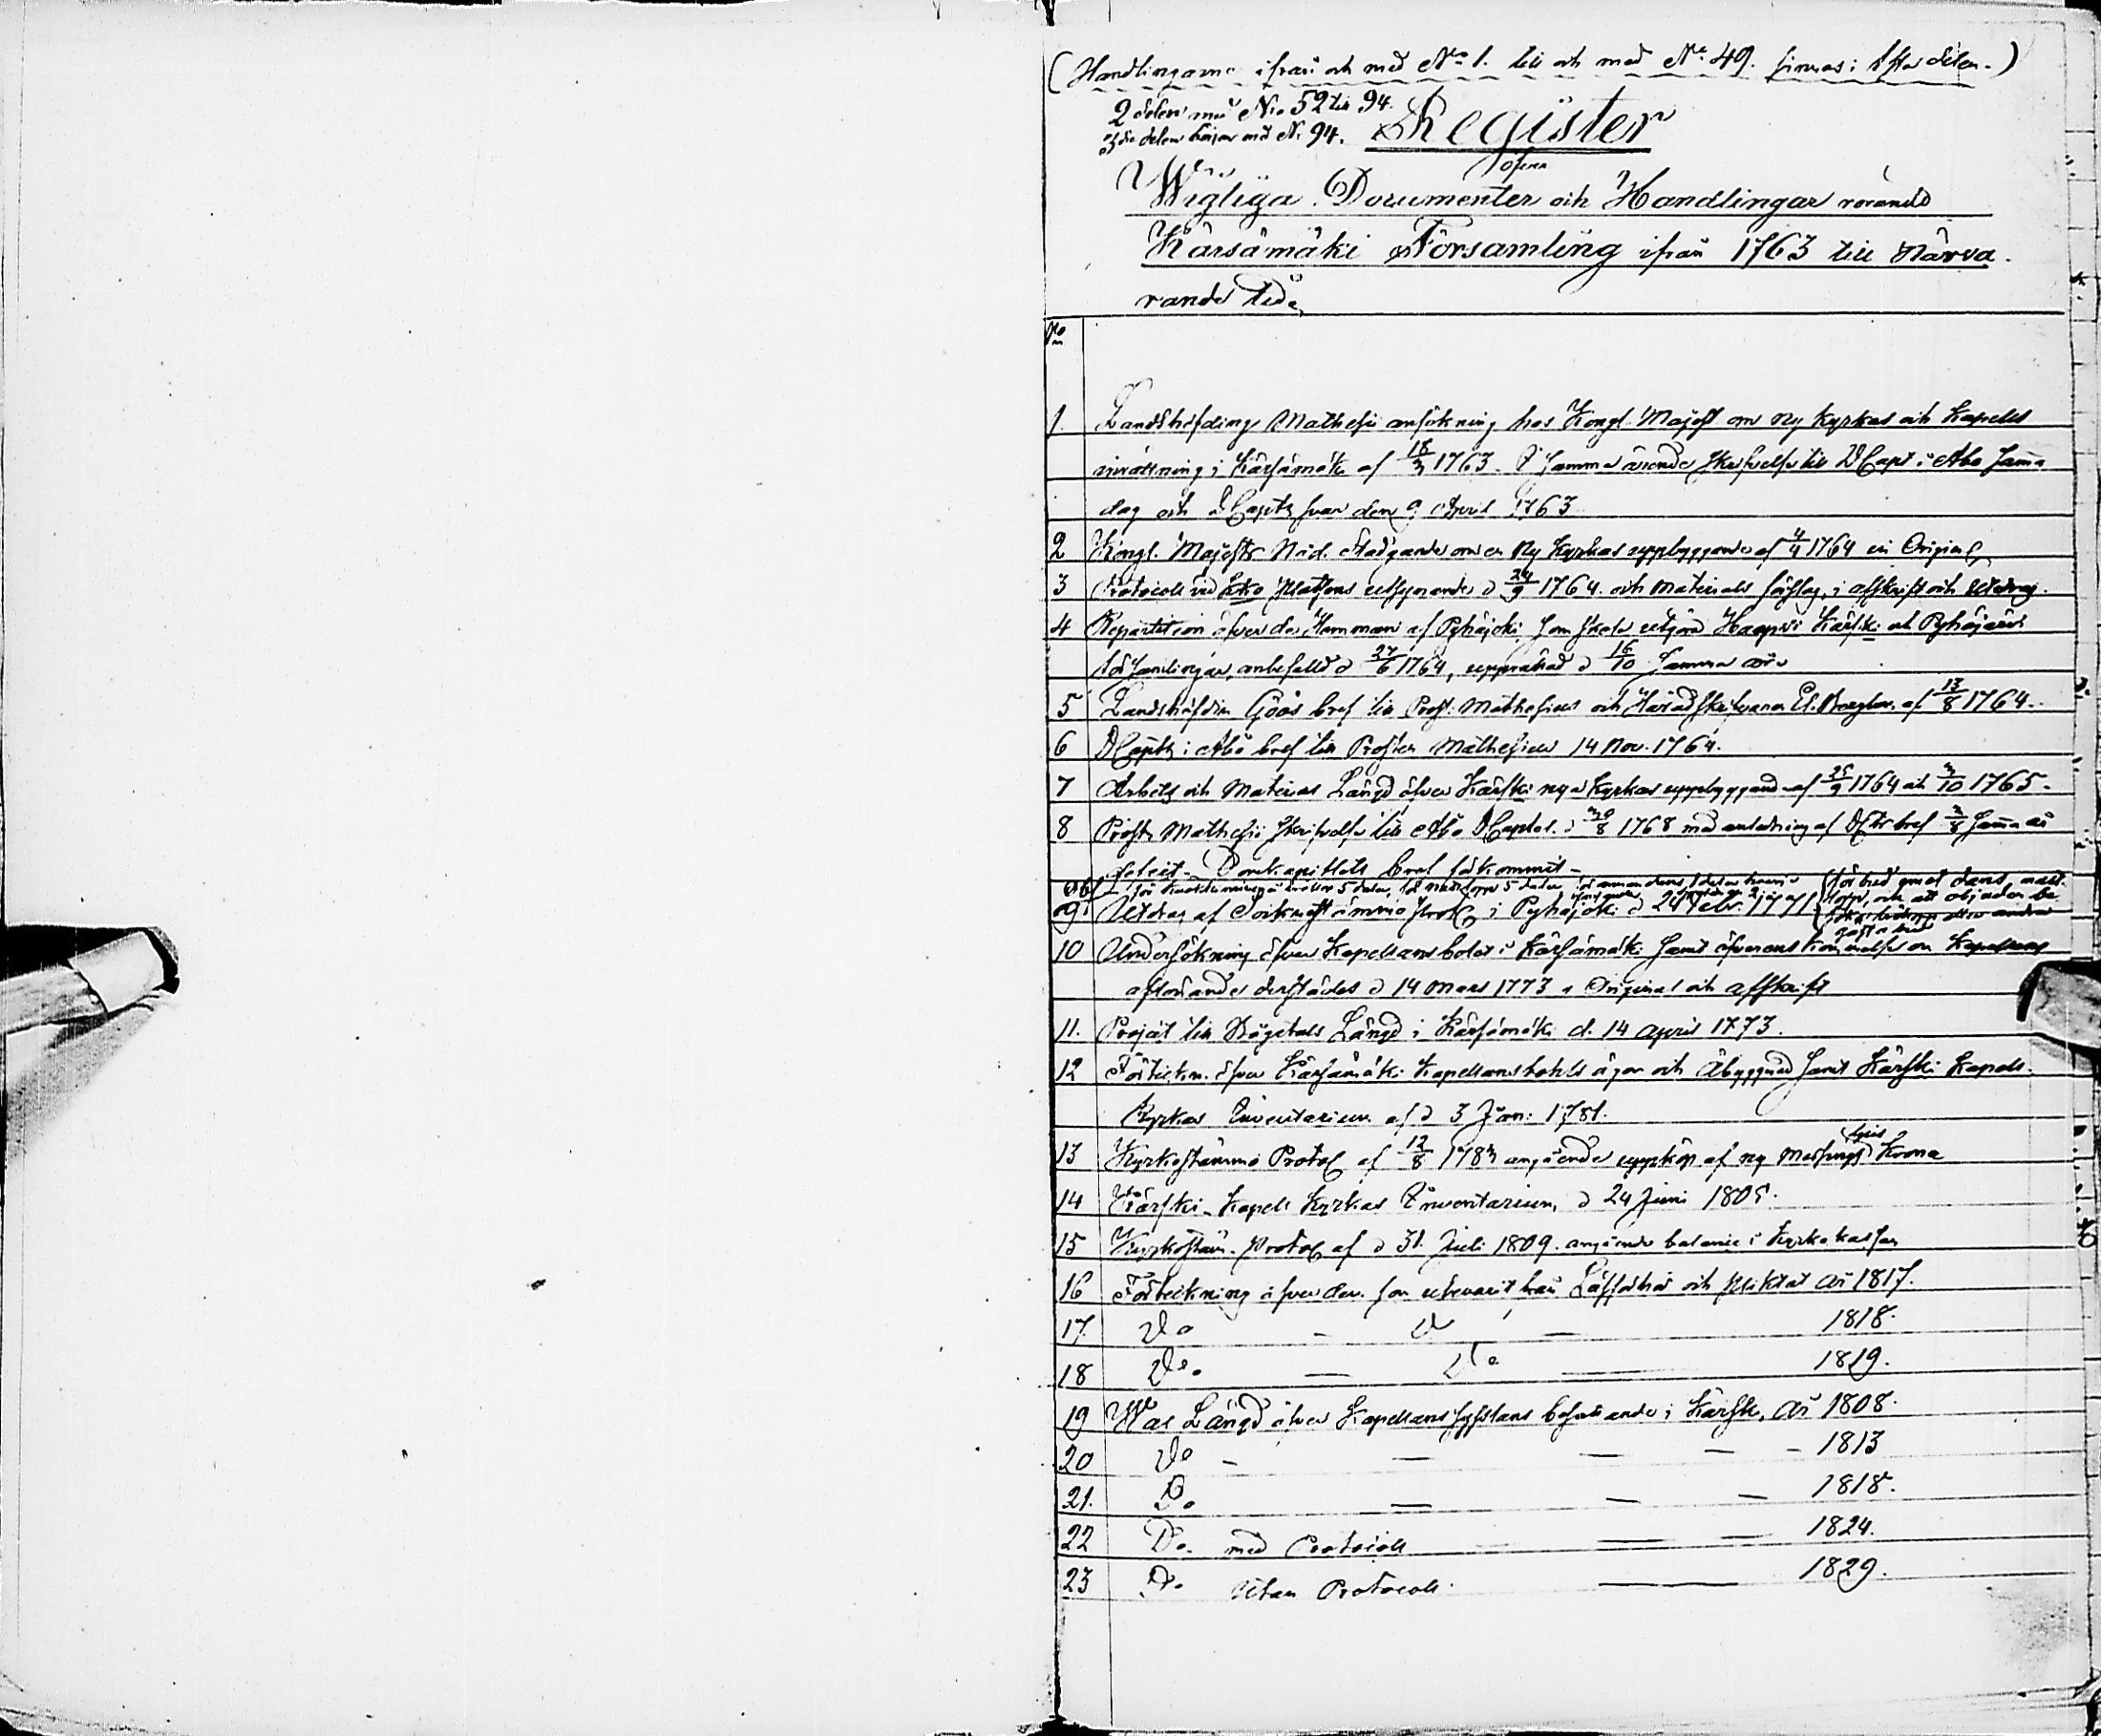 (Handlingarne ifrån och med No 1. till och med No 49. finnas i 1sta delen.)
2 delen med No 52 till 94.
3die delen börjar med No 94.
Register
öfver
Wigtiga Documenter och Handlingar rörande
Kärsämäki Församling ifrån 1763 till närva-
rande tid.
No
1. Landshöfding Mathesii ansökning hos Kongl. Majest om ny Kyrkas och Kapells
inrättning i Kärsämäki af 18/3 1763. I samma ärende skrifvelse till DCapt i Åbo samma
dag och DCapts svar den 9 April 1763
2 Kongl. Majests Nåd. Stadgande om en Ny Kyrkas uppbyggande af 4/4 1764 in Original
3 Protocoll vid Kko platsens utsynande d 24/9 1764. och Materials förslag, i afskrift och utdrag.
4 Repartition öfver de Hemman af Pyhäjoki som skola utgöra Haapavesi Kärsäki och Pyhäjärvi
församlingar, anbefalld d 27/6 1764, upprättad d 16/10 samma år
5 Landshöfdin Göös bref till Prost. Mathesius och Häradsskrifvaren El. Bergbom af 13/8 1764.
6 DCapts i Åbo bref till Prosten Mathesius 14 Nov. 1764.
7 Arbets och Materias Längd öfver Kärski nya Kyrkas uppbyggand af 25/9 1764 och 3/10 1765.
8 Prosts Mathesii skrifvelse till Åbo DCapitel. d 30/8 1768 med anledning af DCts bref 3/8 samma år
Domkapitlets bref förkommit
9. Utdrag af Sockenstämmo Prot i Pyhäjoki d 24 Febr. 1771
10 Undersökning öfver Kapellans bolet i Kärsämäki samt öfverenskommelse om Kapellans
aflönande derstädes d 14 Mars 1773 i Original och afskrift
11. Project till Dagetals Längd i Kärsämäki d. 14 April 1773.
12 Förteckn. öfver Kärsämäki Kapellansbohls ägor och Åbyggnad samt Kärski Kapell
Kyrkas Inventarium af d 3 Jan: 1781.
13 Kyrkostämmo Protoc af 12/8 1783 angående uppköp af ny Messings ljus Krona
14 Kärski Kapell Kyrkas Inventarium, d 24 Juni 1805.
15 Kyrkostäm. Protoc af d 31. Juli 1809. angående balance i Kyrkokassan
16 Förteckning öfver dem som utevarit från Läsförhör och pliktat år 1817.
17 Do - Do - 1818.
18 Do - Do - 1819.
19 Wal Längd öfver Kapellans sysslans besättande i Kärsk. år 1808.
20 Do - - - - 1813
21. Do - - - 1818.
22 Do. med Protocoll - - 1824.
23 Do. Utan Protocoll. - 1829.